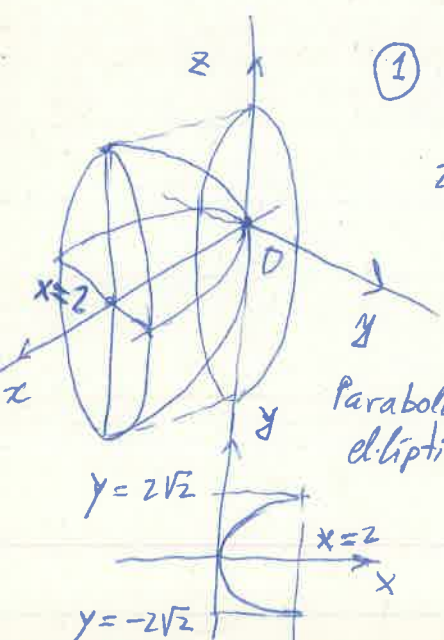 z
①
x=2
O
y
x
y
Parabol
eliptí
y = 2√2
x=2
x
y = -2√2